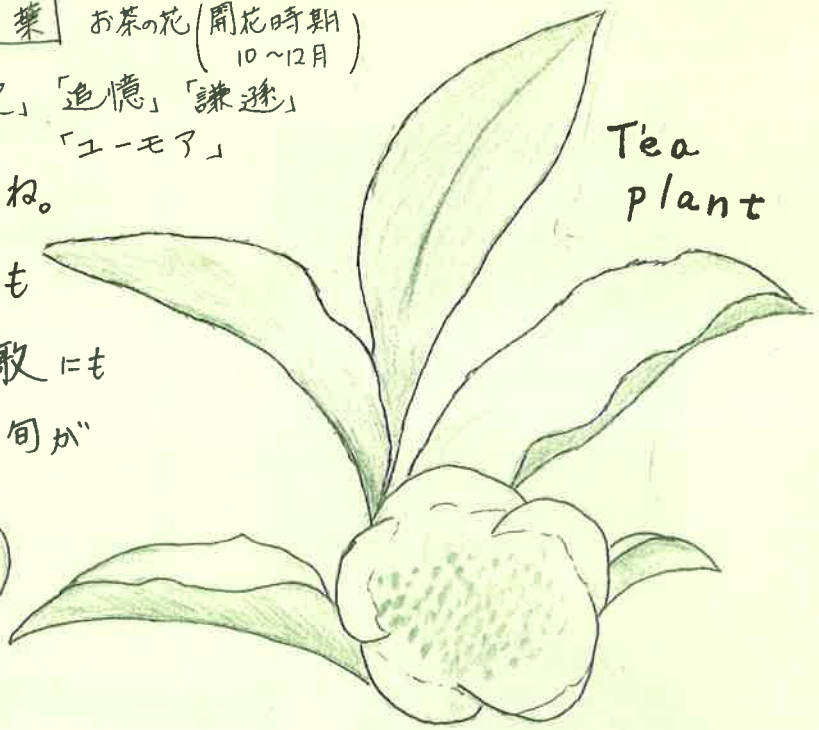 葉 お茶の花(開花時期
10~12月)
」「追憶」「謙遜」
「ユーモア」
ね。
も
歌にも
旬が
Tea
plant